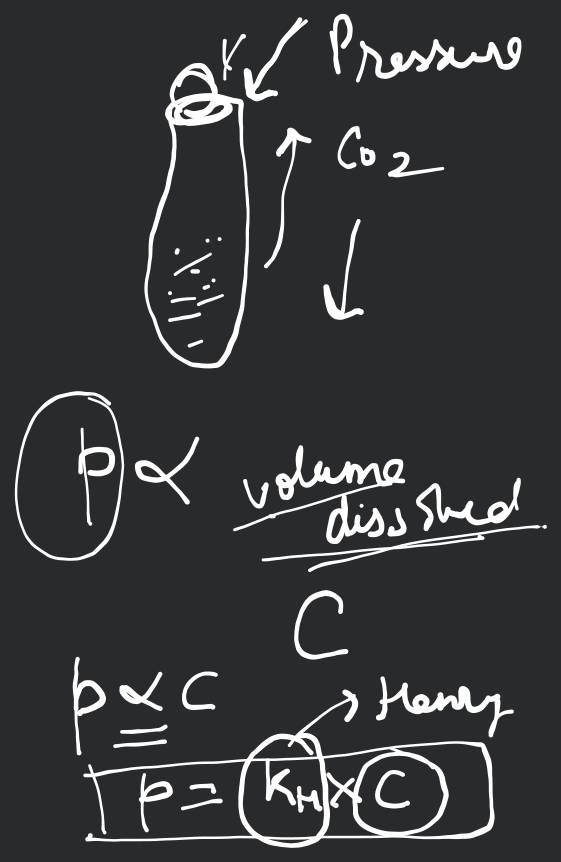 Pressure
Co2
p ∝ volume
dissolved
C
p ∝ C
Henry
p = KH × C